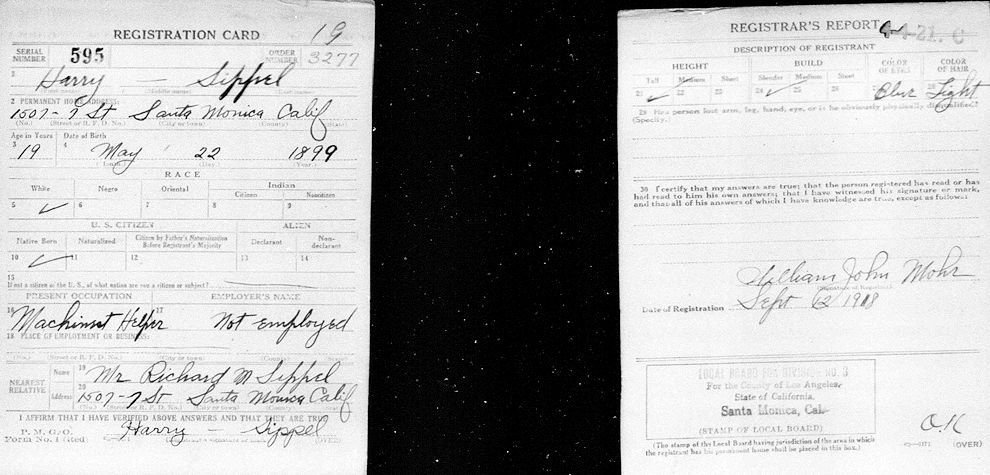 REGISTRATION CARD 19
SERIAL NUMBER 595 ORDER NUMBER 3277
1 Harry — Sippel
(First name) (Middle name) (Last name)
2 PERMANENT HOME ADDRESS:
1507-7 St Santa Monica Calif
(No.) (Street or R. F. D. No.) (City or town) (County) (State)
Age in Years Date of Birth
3 19 4 May 22 1899
(Month.) (Day.) (Year.)
RACE
White Negro Oriental Indian
Citizen Noncitizen
5 ✓ 6 7 8 9
U. S. CITIZEN ALIEN
Native Born Naturalized Citizen by Father's Naturalization Before Registrant's Majority Declarant Non-declarant
10 ✓ 11 12 13 14
15
If not a citizen of the U. S., of what nation are you a citizen or subject?
PRESENT OCCUPATION EMPLOYER'S NAME
16 Machinist Helper 17 Not employed
18 PLACE OF EMPLOYMENT OR BUSINESS:
(No.) (Street or R. F. D. No.) (City or town) (County) (State)
NEAREST RELATIVE
Name 19 Mr Richard M Sippel
Address 20 1507-7 St Santa Monica Calif
(No.) (Street or R. F. D. No.) (City or town) (County) (State)
I AFFIRM THAT I HAVE VERIFIED ABOVE ANSWERS AND THAT THEY ARE TRUE
P. M. G. O.
Form No. 1 (Red) Harry — Sippel (OVER)
REGISTRAR'S REPORT 4-4-21. C
DESCRIPTION OF REGISTRANT
HEIGHT BUILD COLOR OF EYES COLOR OF HAIR
Tall Medium Short Slender Medium Stout
21 ✓ 22 23 24 ✓ 25 26 27 Blue 28 Light
29 Has person lost arm, leg, hand, eye, or is he obviously physically disqualified?
(Specify.)
30 I certify that my answers are true; that the person registered has read or has
had read to him his own answers; that I have witnessed his signature or mark,
and that all of his answers of which I have knowledge are true, except as follows:
William John Mohr
(Signature of Registrar)
Date of Registration Sept 12 1918
LOCAL BOARD FOR DIVISION NO. 3
For the County of Los Angeles,
State of California,
Santa Monica, Cal.
(STAMP OF LOCAL BOARD)
O.K
(The stamp of the Local Board having jurisdiction of the area in which
the registrant has his permanent home shall be placed in this box.)
(OVER)